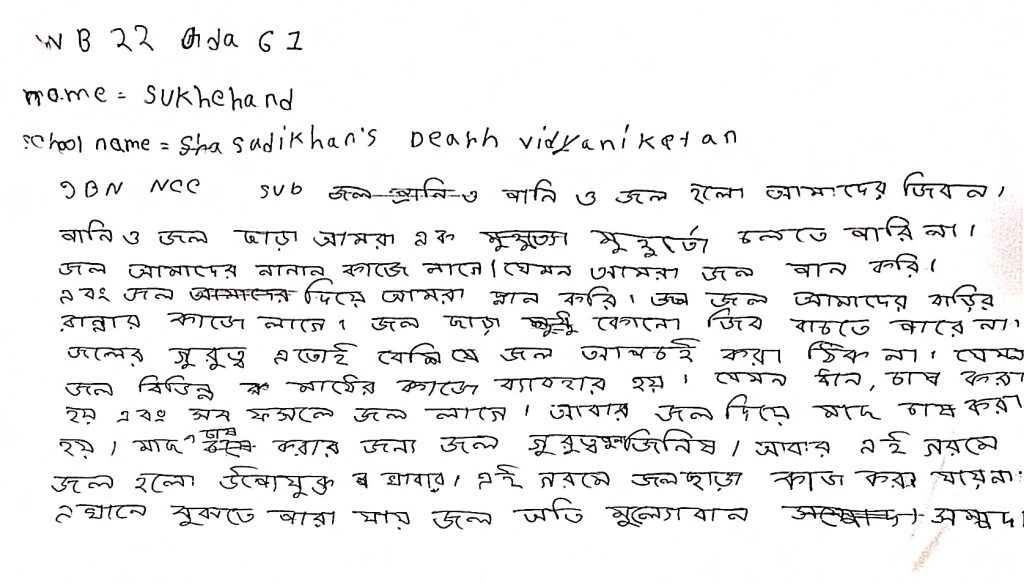 WB 22 Oda G1
name = SUKhchand
school name = Sha Sadikhan's Dearh vidyaniketan
JBN NCC SUB জল পানি ও পানি ও জল হলো আমাদের জিবন।
পানি ও জল ছাড়া আমরা এক মুহুর্তো চলতে পারি না।
জল আমাদের নানান কাজে লাগে। যেমন আমরা জল পান করি।
এবং জল আমাদের দিয়ে আমরা স্নান করি। জল আমাদের বাড়ির
রান্নার কাজে লাগে। জল ছাড়া কোনো জিব বাচতে পারে না।
জলের গুরুত্ব এতোই বেশি যে জল আপচই করা ঠিক না। যেমন
জল বিভিন্ন মাঠের কাজে ব্যাবহার হয়। যেমন ধান, চাষ করা
হয় এবং সব ফসলে জল লাগে। আবার জল দিয়ে মাছ চাষ করা
হয়। মাছ চাষ করার জন্য জল গুরুত্বপুন জিনিষ। আবার এই গরমে
জল হলো উপোযুক্ত খাবার। এই গরমে জলছাড়া কাজ করা যায়না।
এখানে বুঝতে পারা যায় জল অতি মুল্যেবান সম্পদ।